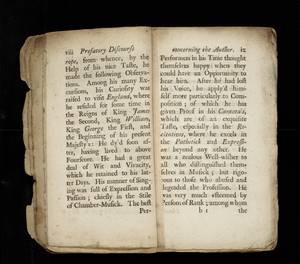 viii Prefatory Discourse
rope, from whence, by the
Help of his nice Taste, he
made the following Observa-
tions. Among his many Ex-
cursions, his Curiosity was
raised to visit England, where
he resided for some time in
the Reigns of King James
the Second, King William,
King George the First, and
the Beginning of his present
Majesty's: He dy'd soon af-
ter, having lived to above
Fourscore. He had a great
deal of Wit and Vivacity,
which he retained to his lat-
ter Days. His manner of Sing-
ing was full of Expression and
Passion; chiefly in the Stile
of Chamber-Musick. The best
Per-
concerning the Author. ix
Performers in his Time thought
themselves happy when they
could have an Opportunity to
hear him. After he had lost
his Voice, he apply'd him-
self more particularly to Com-
position; of which he has
given Proof in his Cantata's,
which are of an exquisite
Taste, especially in the Re-
citatives, where he excels in
the Pathetick and Expressi-
on beyond any other. He
was a zealous Well-wisher to
all who distinguished them-
selves in Musick; but rigo-
rous to those who abused and
degraded the Profession. He
was very much esteemed by
Persons of Rank; among whom
b 1 the